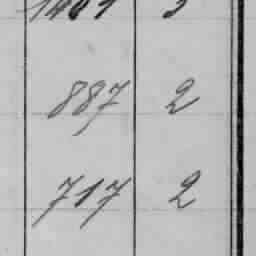 1461 3
887 2
717 2